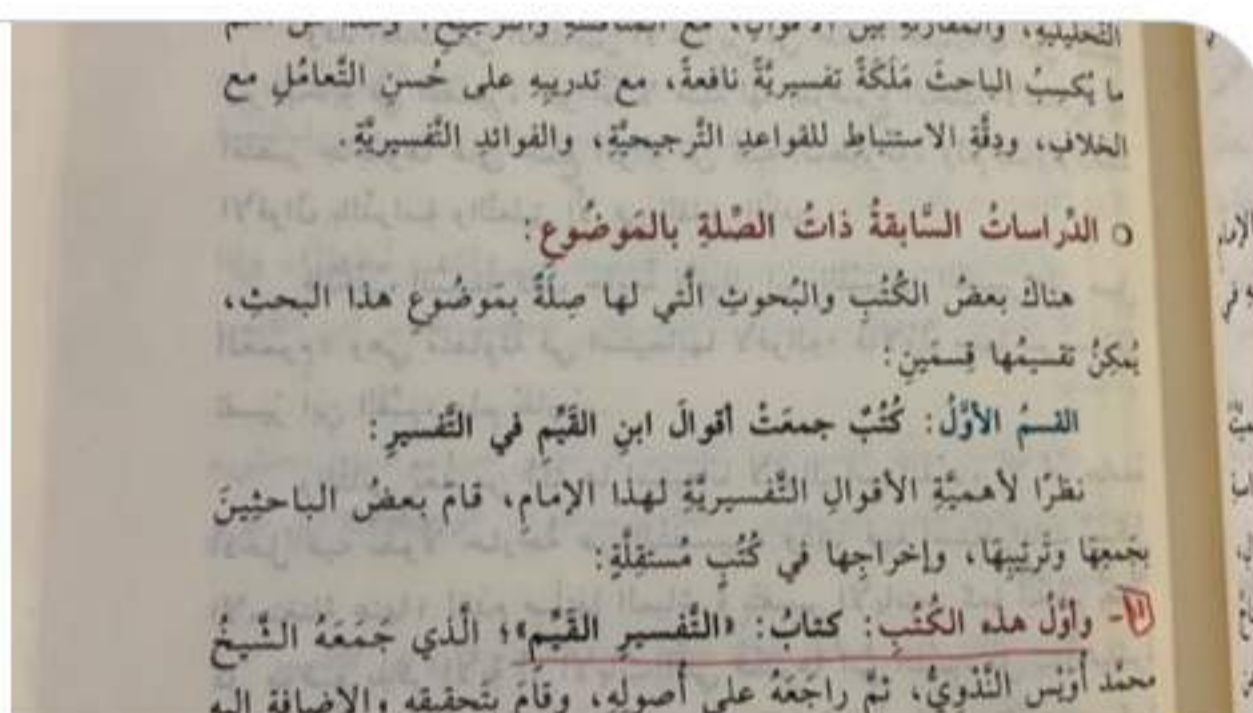 التَّحليليَّةِ، والمقارنةِ بين الأقوالِ، مع المناقشةِ والتَّرجيحِ، وهذا من أهمِّ
ما يُكسِبُ الباحثَ مَلَكَةً تفسيريَّةً نافعةً، مع تدريبِهِ على حُسنِ التَّعامُلِ مع
الخلاف، ودِقَّةِ الاستنباطِ للقواعدِ التَّرجيحيَّةِ، والفوائدِ التَّفسيريَّةِ.
○ الدِّراساتُ السَّابقةُ ذاتُ الصِّلةِ بالمَوضُوعِ:
هناكَ بعضُ الكُتُبِ والبُحوثِ الَّتي لها صِلَةٌ بمَوضُوعِ هذا البحثِ،
يُمكِنُ تقسيمُها قِسمَينِ:
القسمُ الأوَّلُ: كُتُبٌ جمعَتْ أقوالَ ابنِ القَيِّمِ في التَّفسيرِ:
نظرًا لأهميَّةِ الأقوالِ التَّفسيريَّةِ لهذا الإمامِ، قامَ بعضُ الباحثِينَ
بجَمعِهَا وتَرتِيبِهَا، وإخراجِها في كُتُبٍ مُستقِلَّةٍ:
١- وأوَّلُ هذه الكُتُبِ: كتابُ: «التَّفسيرِ القَيِّمِ»؛ الَّذي جَمَعَهُ الشَّيخُ
محمَّد أُوَيْس النَّدْوِيُّ، ثمَّ راجَعَهُ على أصولِهِ، وقامَ بتَحقيقِهِ والإضافةِ إليه